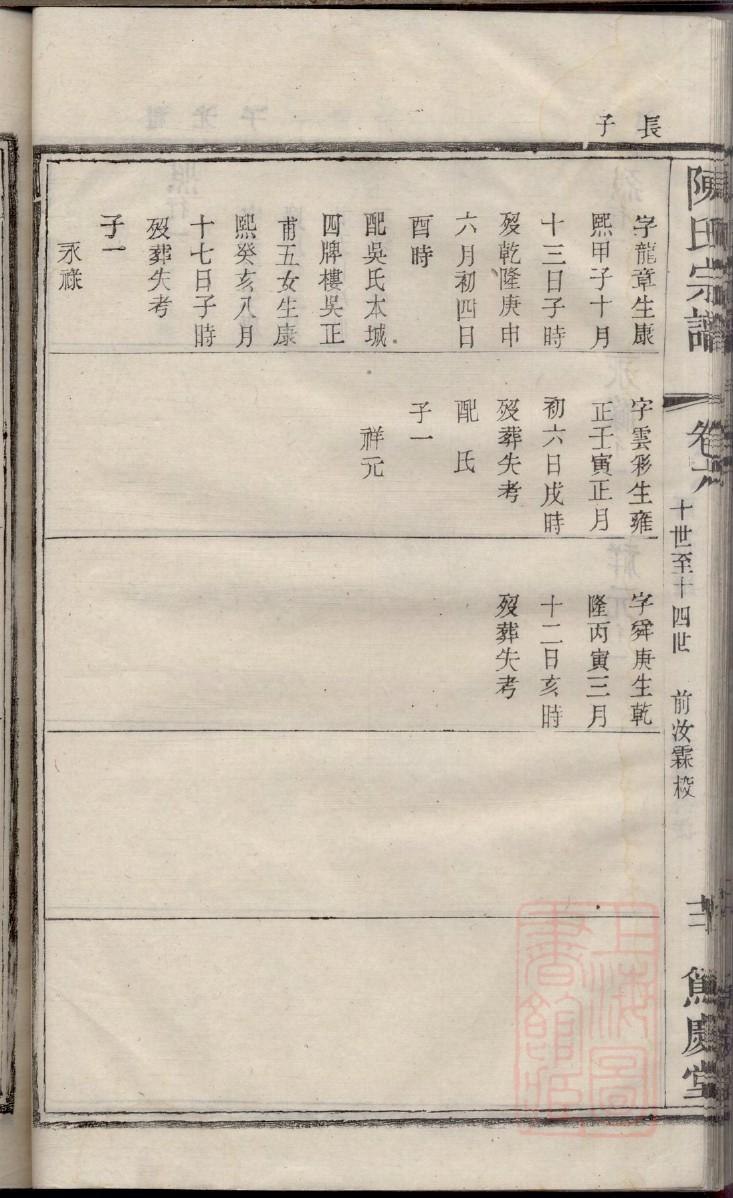 長子
陳氏宗譜
卷六
十世至十四世
前汝霖校
篤慶堂
字龍章生康
熙甲子十月
十三日子時
歿乾隆庚申
六月初四日
酉時
配吳氏本城
四牌樓吳正
甫五女生康
熙癸亥八月
十七日子時
歿葬失考
子一
永祿
字雲彩生雍
正壬寅正月
初六日戌時
歿葬失考
配氏
子一
祥元
字舜庚生乾
隆丙寅三月
十二日亥時
歿葬失考
上海圖書館藏